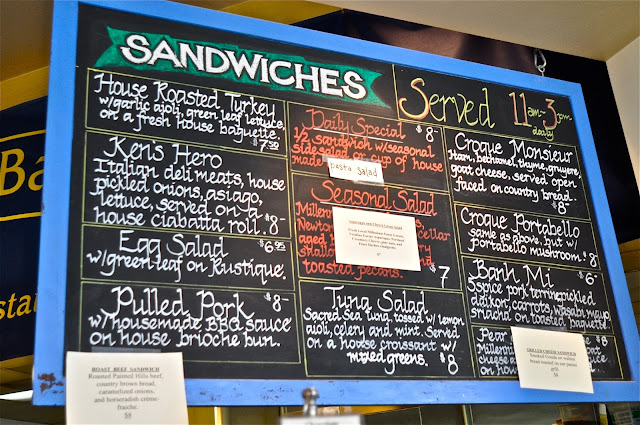 SANDWICHES
Served 11am-3pm
daily
House Roasted Turkey
w/garlic aioli, green leaf lettuce,
on a fresh house baguette.
$7.50
Ken's Hero
Italian deli meats, house
pickled onions, asiago,
lettuce, served on a
house ciabatta roll. $9-
Egg Salad $6.95
w/green leaf on Rustique.
Pulled Pork $8-
w/housemade BBQ sauce
on house brioche bun.
ROAST BEEF SANDWICH
Roasted Painted Hills beef,
country brown bread,
caramelized onions,
and horseradish crème-
fraiche.
$8
Daily Special $8-
1/2 sandwich w/seasonal
side salad or cup of house
made
pasta Salad
Seasonal Salad
toasted pecans. $7
Tuna Salad
Sacred Sea tuna, tossed w/lemon
aioli, celery and mint. Served
on a house croissant w/
mixed greens. $8
Croque Monsieur
Ham, bechamel, thyme, gruyere,
goat cheese, served open
faced on country bread.
$8-
Croque Portabello
same as above, but w/
portabello mushroom. $8
Banh Mi $6-
5 spice pork terrine, pickled
daikon, carrots, wasabi mayo,
sriracha on toasted baguette.
Pear
GRILLED CHEESE SANDWICH
Smoked Gouda on walnut
bread toasted on our panini
grill
$6